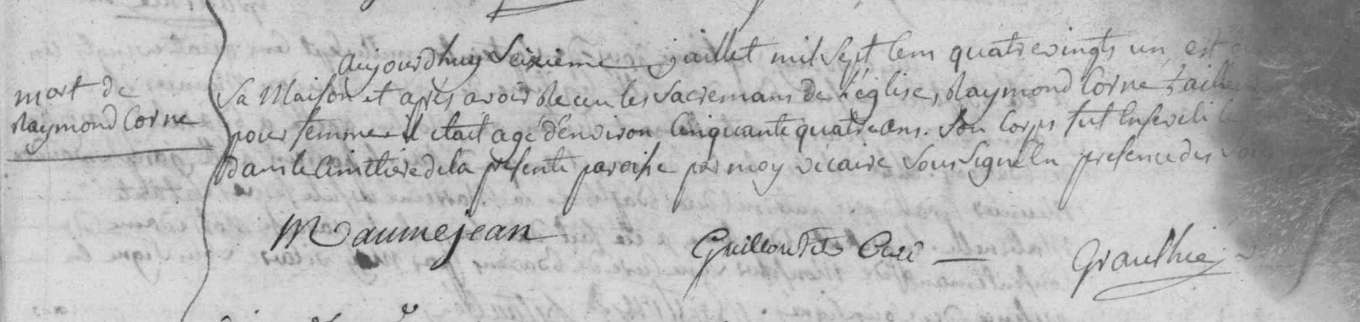 mort de
Raymond Corne
aujourdhuy Seizieme juillet mil Sept Cens quatrevingts un, est
Sa Maison et après avoir Reçeu les Sacremans de l'église, Raymond Corne taille
pour femme il etait agé d'environ Cinquante quatre ans. Son Corps fut Enseveli
dans le Cimitiere de la presente paroisse par moy vicaire Soussigné En presence des
Maumejean
Guillon Curé
Grauthie